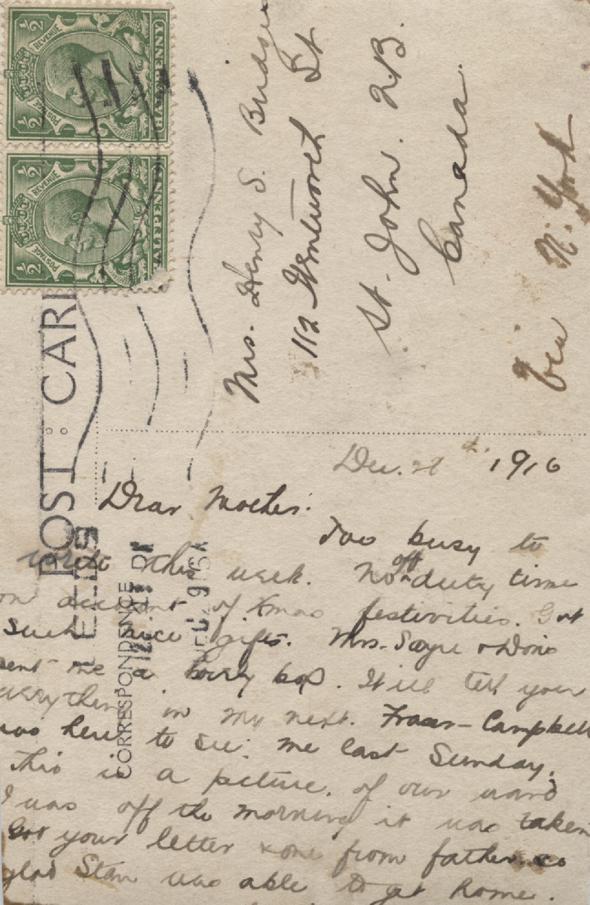 POST CARD
CORRESPONDENCE
POSTAGE REVENUE
HALFPENNY
½ ½
POSTAGE REVENUE
HALFPENNY
½ ½
Mrs. Henry S. Bridges
112 Wentworth St
St. John. N.B.
Canada.
Via N. York
Dec. 1916
Dear Mother:
Too busy to
write this week. No off duty time
on account of Xmas festivities. Got
such nice gifts. Mrs. Sayre & Doris
sent me a box. I'll tell you
everything in my next. Fraser-Campbell
was here to see me last Sunday.
This is a picture of our ward
I was off the morning it was taken
Got your letter & one from father so
glad Stan was able to get home.